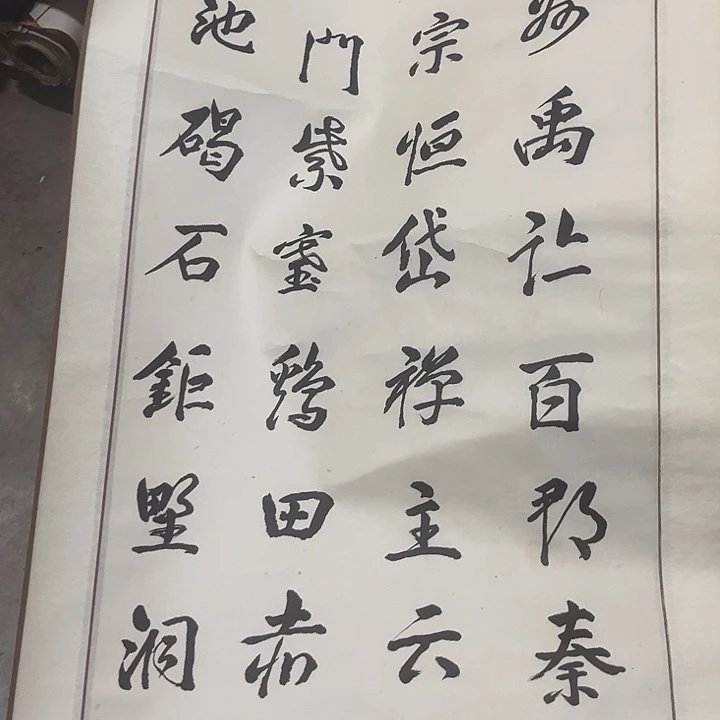 州禹跡百郡秦
宗恒岱禅主云
門紫塞鷄田赤
池碣石鉅墅洞